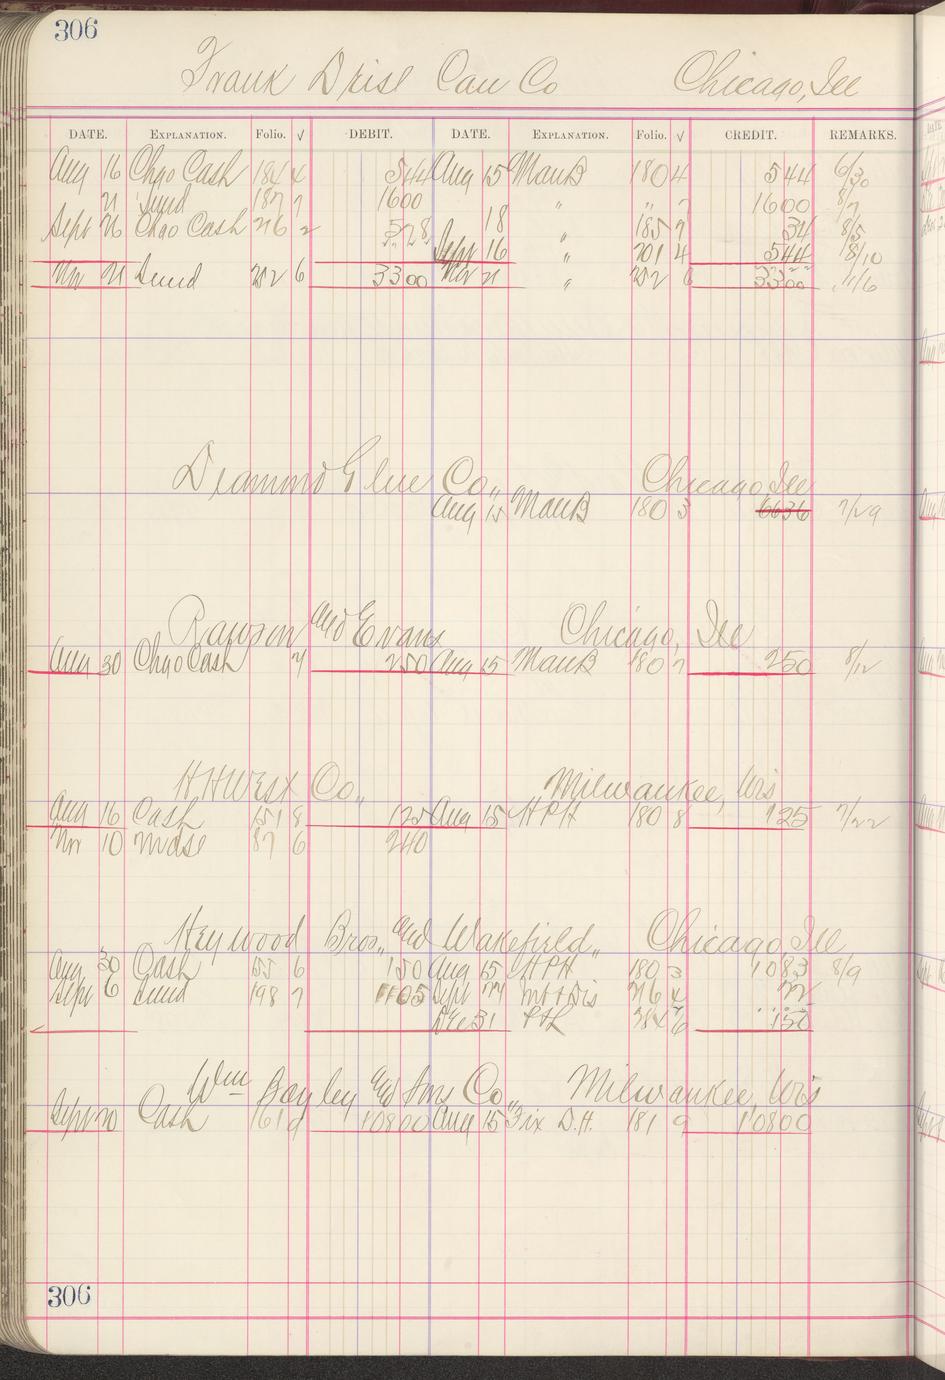 306
Frank Drisl Can Co Chicago, Ill
DATE. EXPLANATION. Folio. √ DEBIT. DATE. EXPLANATION. Folio. √ CREDIT. REMARKS.
Aug 16 Chgo Cash 184 4 544 Aug 15 ManB 180 4 544 6/30
21 Sund 187 7 1600 " " 7 1600 8/7
Sept 26 Chgo Cash 216 2 578 18 " 185 9 34 8/5
Sept 16 " 201 4 544 8/10
Nov 21 Sund 252 6 3300 Nov 21 " 252 6 3300 11/6
Diamond Glue Co,, Chicago Ill
Aug 15 ManB 180 3 6636 7/29
Rawson and Evans Chicago, Ill
Aug 30 Chgo Cash 250 Aug 15 ManB 180 7 250 8/12
H H West Co,, Milwaukee, Wis
Aug 16 Cash 151 8 125 Aug 15 H P H 180 8 125 7/22
Nov 10 Mdse 87 6 240
Heywood Bros,, and Wakefield,, Chicago Ill
Aug 30 Cash 155 6 150 Aug 15 H P H 180 3 1083 8/9
Sept 6 Sund 198 7 1105 Sept 216 4 22
Dec 31 6 150
Wm Bayley and Sons Co,, Milwaukee, Wis
Sept 20 Cash 161 9 10800 Aug 15 Fix D.H. 181 9 10800
306